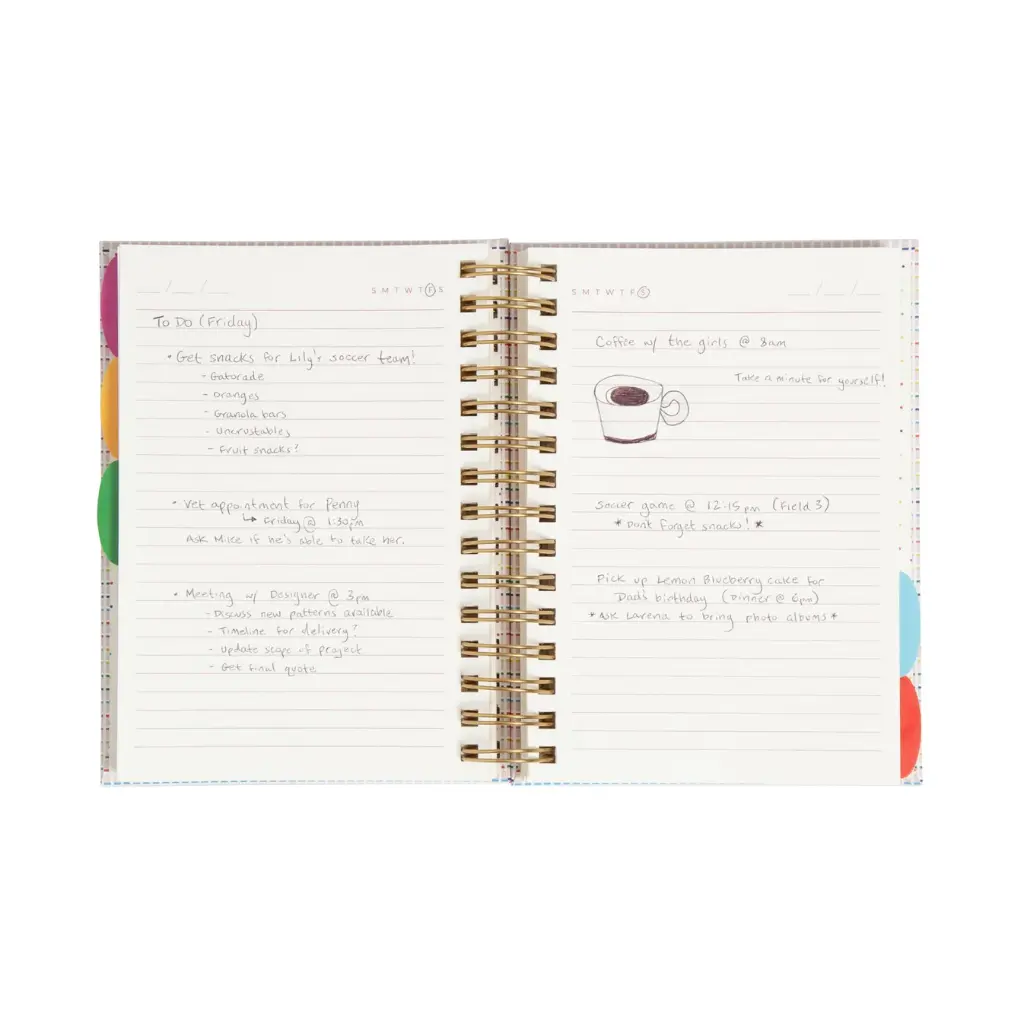 __/__/__
S M T W T F S
To Do (Friday)
• Get snacks for Lily's soccer team!
- Gatorade
- Oranges
- Granola bars
- Uncrustables
- Fruit snacks?
• Vet appointment for Penny
↳ Friday @ 1:30pm
Ask Mike if he's able to take her.
• Meeting w/ Designer @ 3pm
- Discuss new patterns available
- Timeline for delivery?
- Update scope of project
- Get final quote
S M T W T F S
__/__/__
Coffee w/ the girls @ 8am
Take a minute for yourself!
Soccer game @ 12:15pm (Field 3)
*Dont forget snacks!*
Pick up Lemon Blueberry cake for
Dad's birthday (Dinner @ 6pm)
*Ask Larena to bring photo albums*